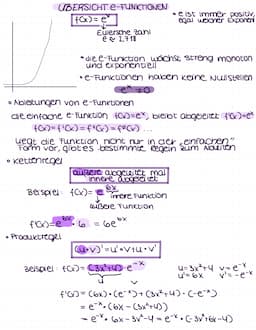 ÜBERSICHT e-FUNKTIONEN
f(x) = eˣ
Eulersche Zahl
e ≈ 2,718
• e ist immer positiv,
egal welcher Exponent
• die e-Funktion wächst streng monoton
und exponentiell
• e-Funktionen haben keine Nullstellen
eˣ ≠ 0
• Ableitungen von e-Funktionen
die einfache e-Funktion f(x)=eˣ, bleibt abgeleitet f'(x)=eˣ
f(x)=f'(x)=f''(x)=f'''(x) ...
liegt die Funktion nicht nur in der "einfachen"
Form vor, gibt es bestimmte Regeln zum Ableiten
• Kettenregel
äußere abgeleitet mal
innere abgeleitet
Beispiel: f(x)= e⁶ˣ
innere Funktion
äußere Funktion
f'(x)= e⁶ˣ · 6 = 6e⁶ˣ
• Produktregel
(u·v)' = u'·v+u·v'
Beispiel: f(x) = (3x²+4)·e⁻ˣ
u v
u=3x²+4 v=e⁻ˣ
u'=6x v'=-e⁻ˣ
f'(x) = (6x)·(e⁻ˣ)+(3x²+4)·(-e⁻ˣ)
= e⁻ˣ·(6x-(3x²+4))
= e⁻ˣ·6x-3x²-4 = e⁻ˣ·(-3x²+6x-4)